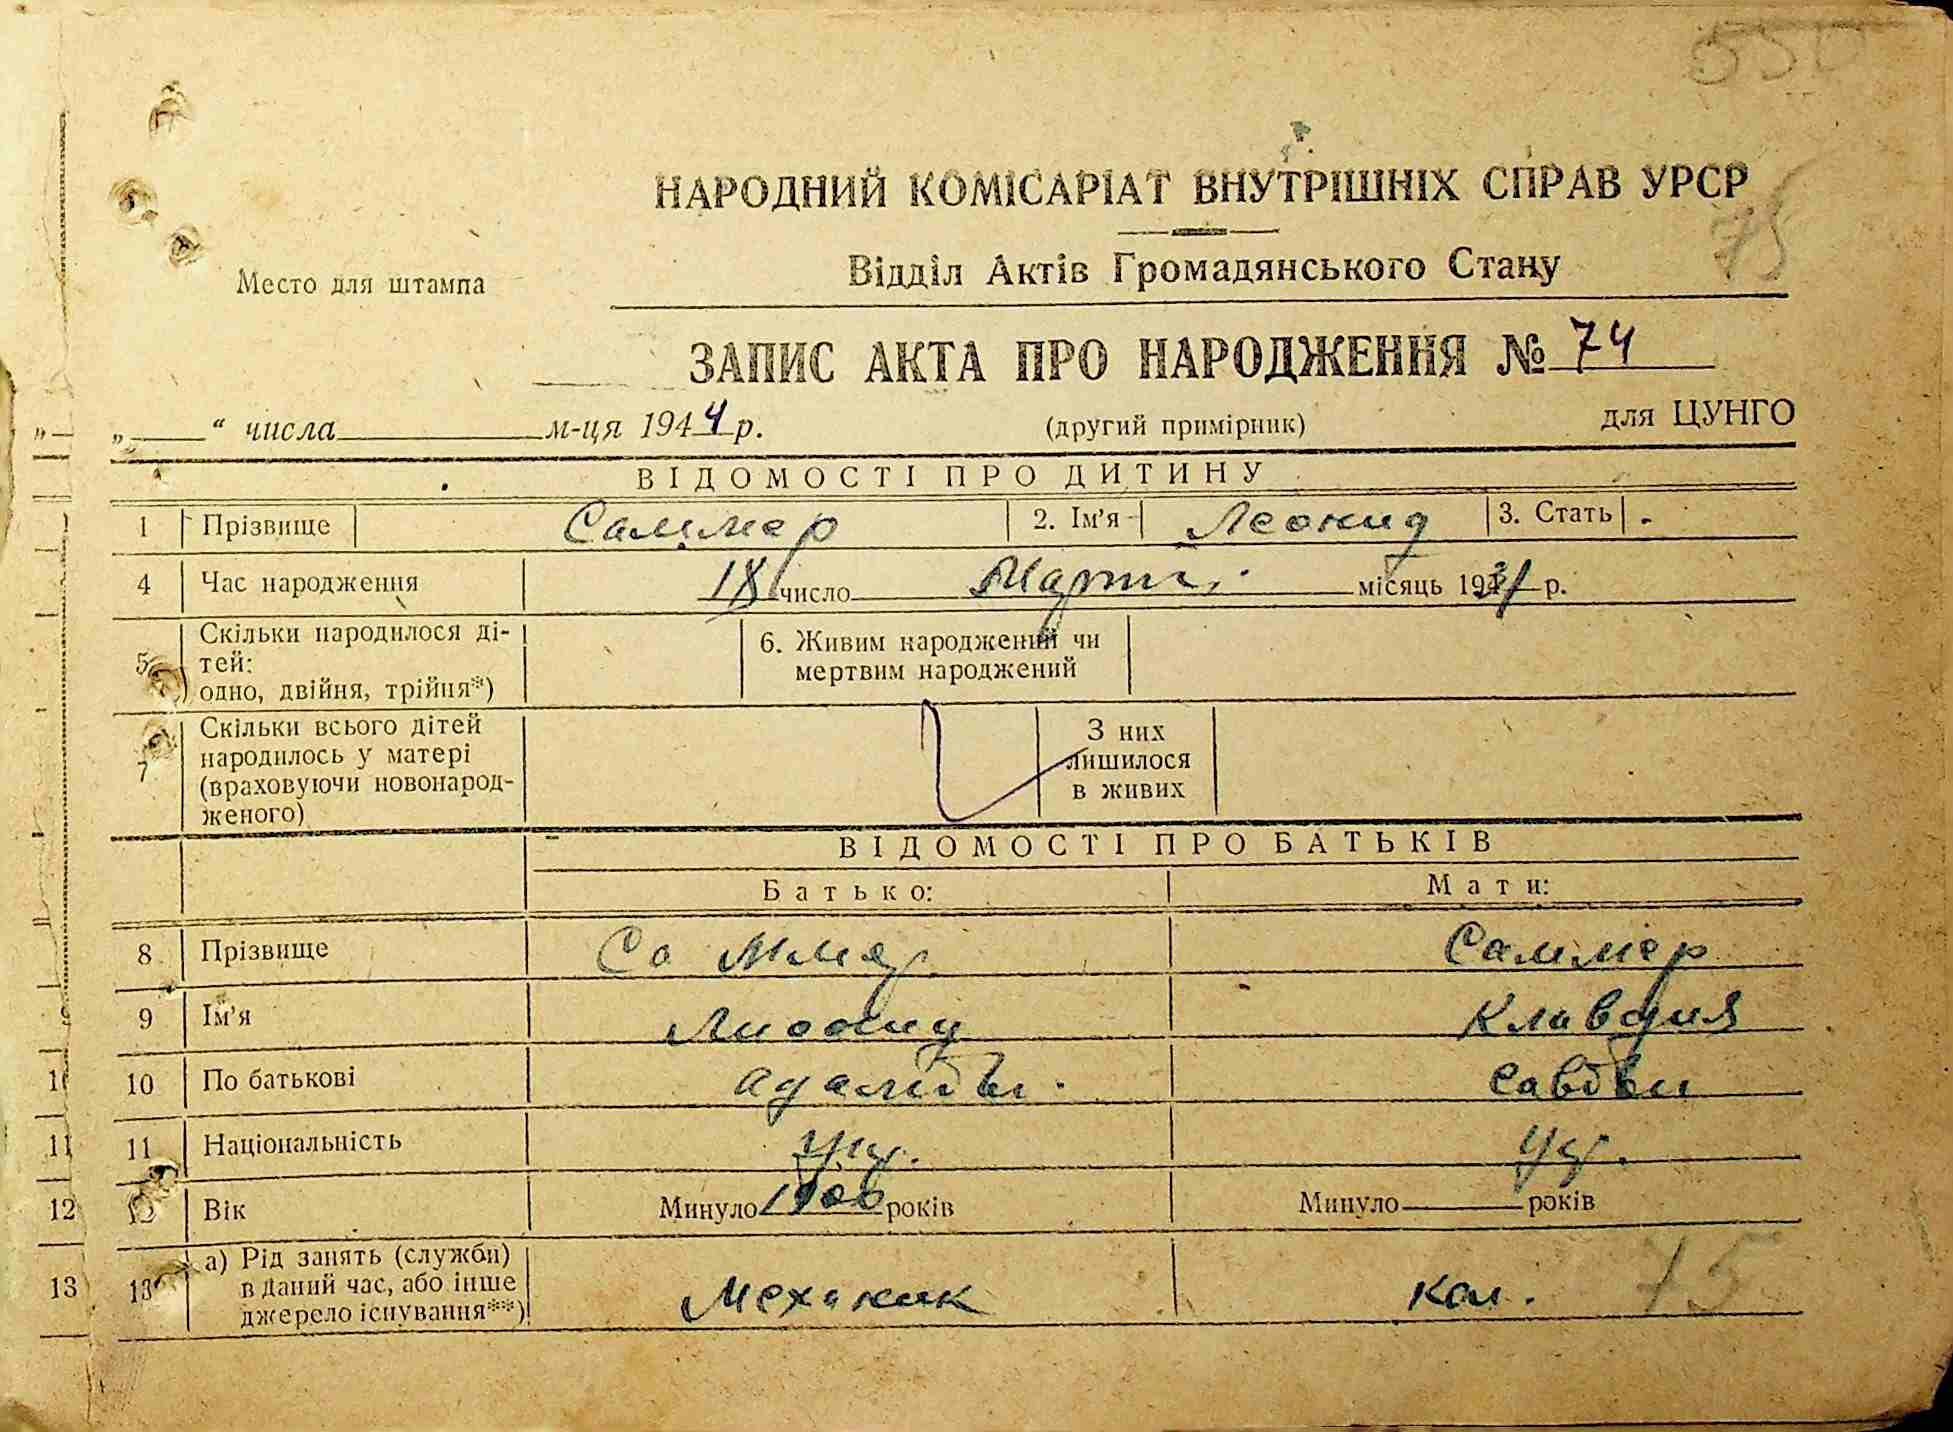 550
НАРОДНИЙ КОМІСАРІАТ ВНУТРІШНІХ СПРАВ УРСР
75
Відділ Актів Громадянського Стану
Место для штампа
ЗАПИС АКТА ПРО НАРОДЖЕННЯ № 74
„ “ числа м-ця 1944 р. (другий примірник) для ЦУНГО
ВІДОМОСТІ ПРО ДИТИНУ
1 Прізвище Саммер 2. Ім'я Леонид 3. Стать
4 Час народження число місяць р.
5 Скільки народилося ді-
тей:
одно, двійня, трійня*)
6. Живим народжений чи
мертвим народжений
7 Скільки всього дітей
народилось у матері
(враховуючи новонарод-
женого)
З них
лишилося
в живих
ВІДОМОСТІ ПРО БАТЬКІВ
Батько: Мати:
8 Прізвище Саммер Саммер
9 Ім'я Клавдия
10 10 По батькові
11 11 Національність
12 12 Вік Минуло 1900 років Минуло років
13 13 а) Рід занять (служби)
в даний час, або інше
джерело існування**)
Механик кол. 75